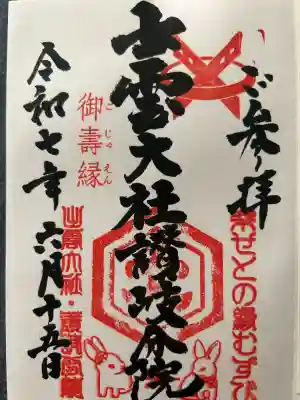 ご参拝
幸せとの縁むすび
出雲大社讃岐分院
御壽縁
ご じゅ えん
令和七年 六月十五日
出雲大社・讃岐